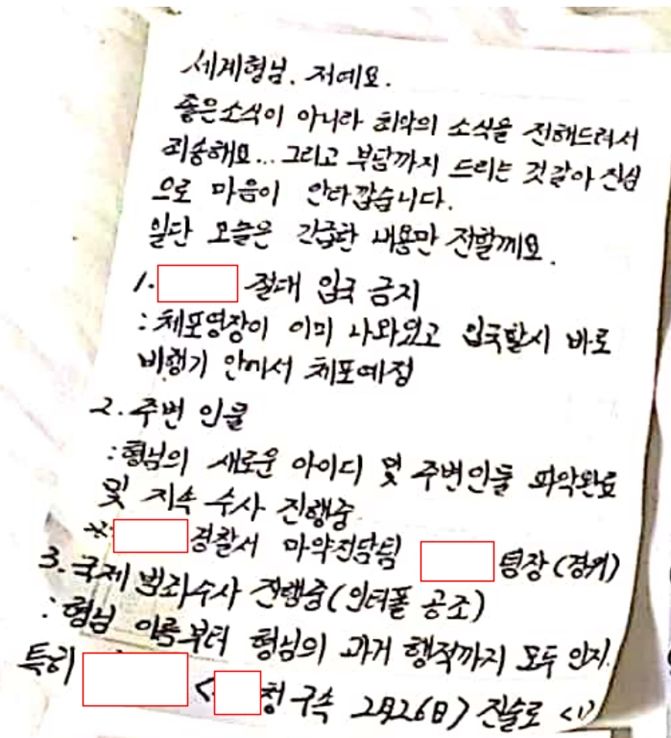 세계형님. 저예요.
좋은소식이 아니라 최악의 소식을 전해드려서
죄송해요... 그리고 부담까지 드리는 것같아 진심
으로 마음이 안타깝습니다.
일단 오늘은 긴급한 내용만 전할께요.
1. 절대 입국 금지
: 체포영장이 이미 나와있고 입국할시 바로
비행기 안에서 체포예정
2. 주변 인물
: 형님의 새로운 아이디 및 주변인물 파악완료
및 지속 수사 진행중
※ 경찰서 마약전담팀 팀장 (경위)
3. 국제 범죄수사 진행중 (인터폴 공조)
: 형님 이름부터 형님의 과거 행적까지 모두 인지.
특히 < 청 구속 2月26日> 진술로 <1>